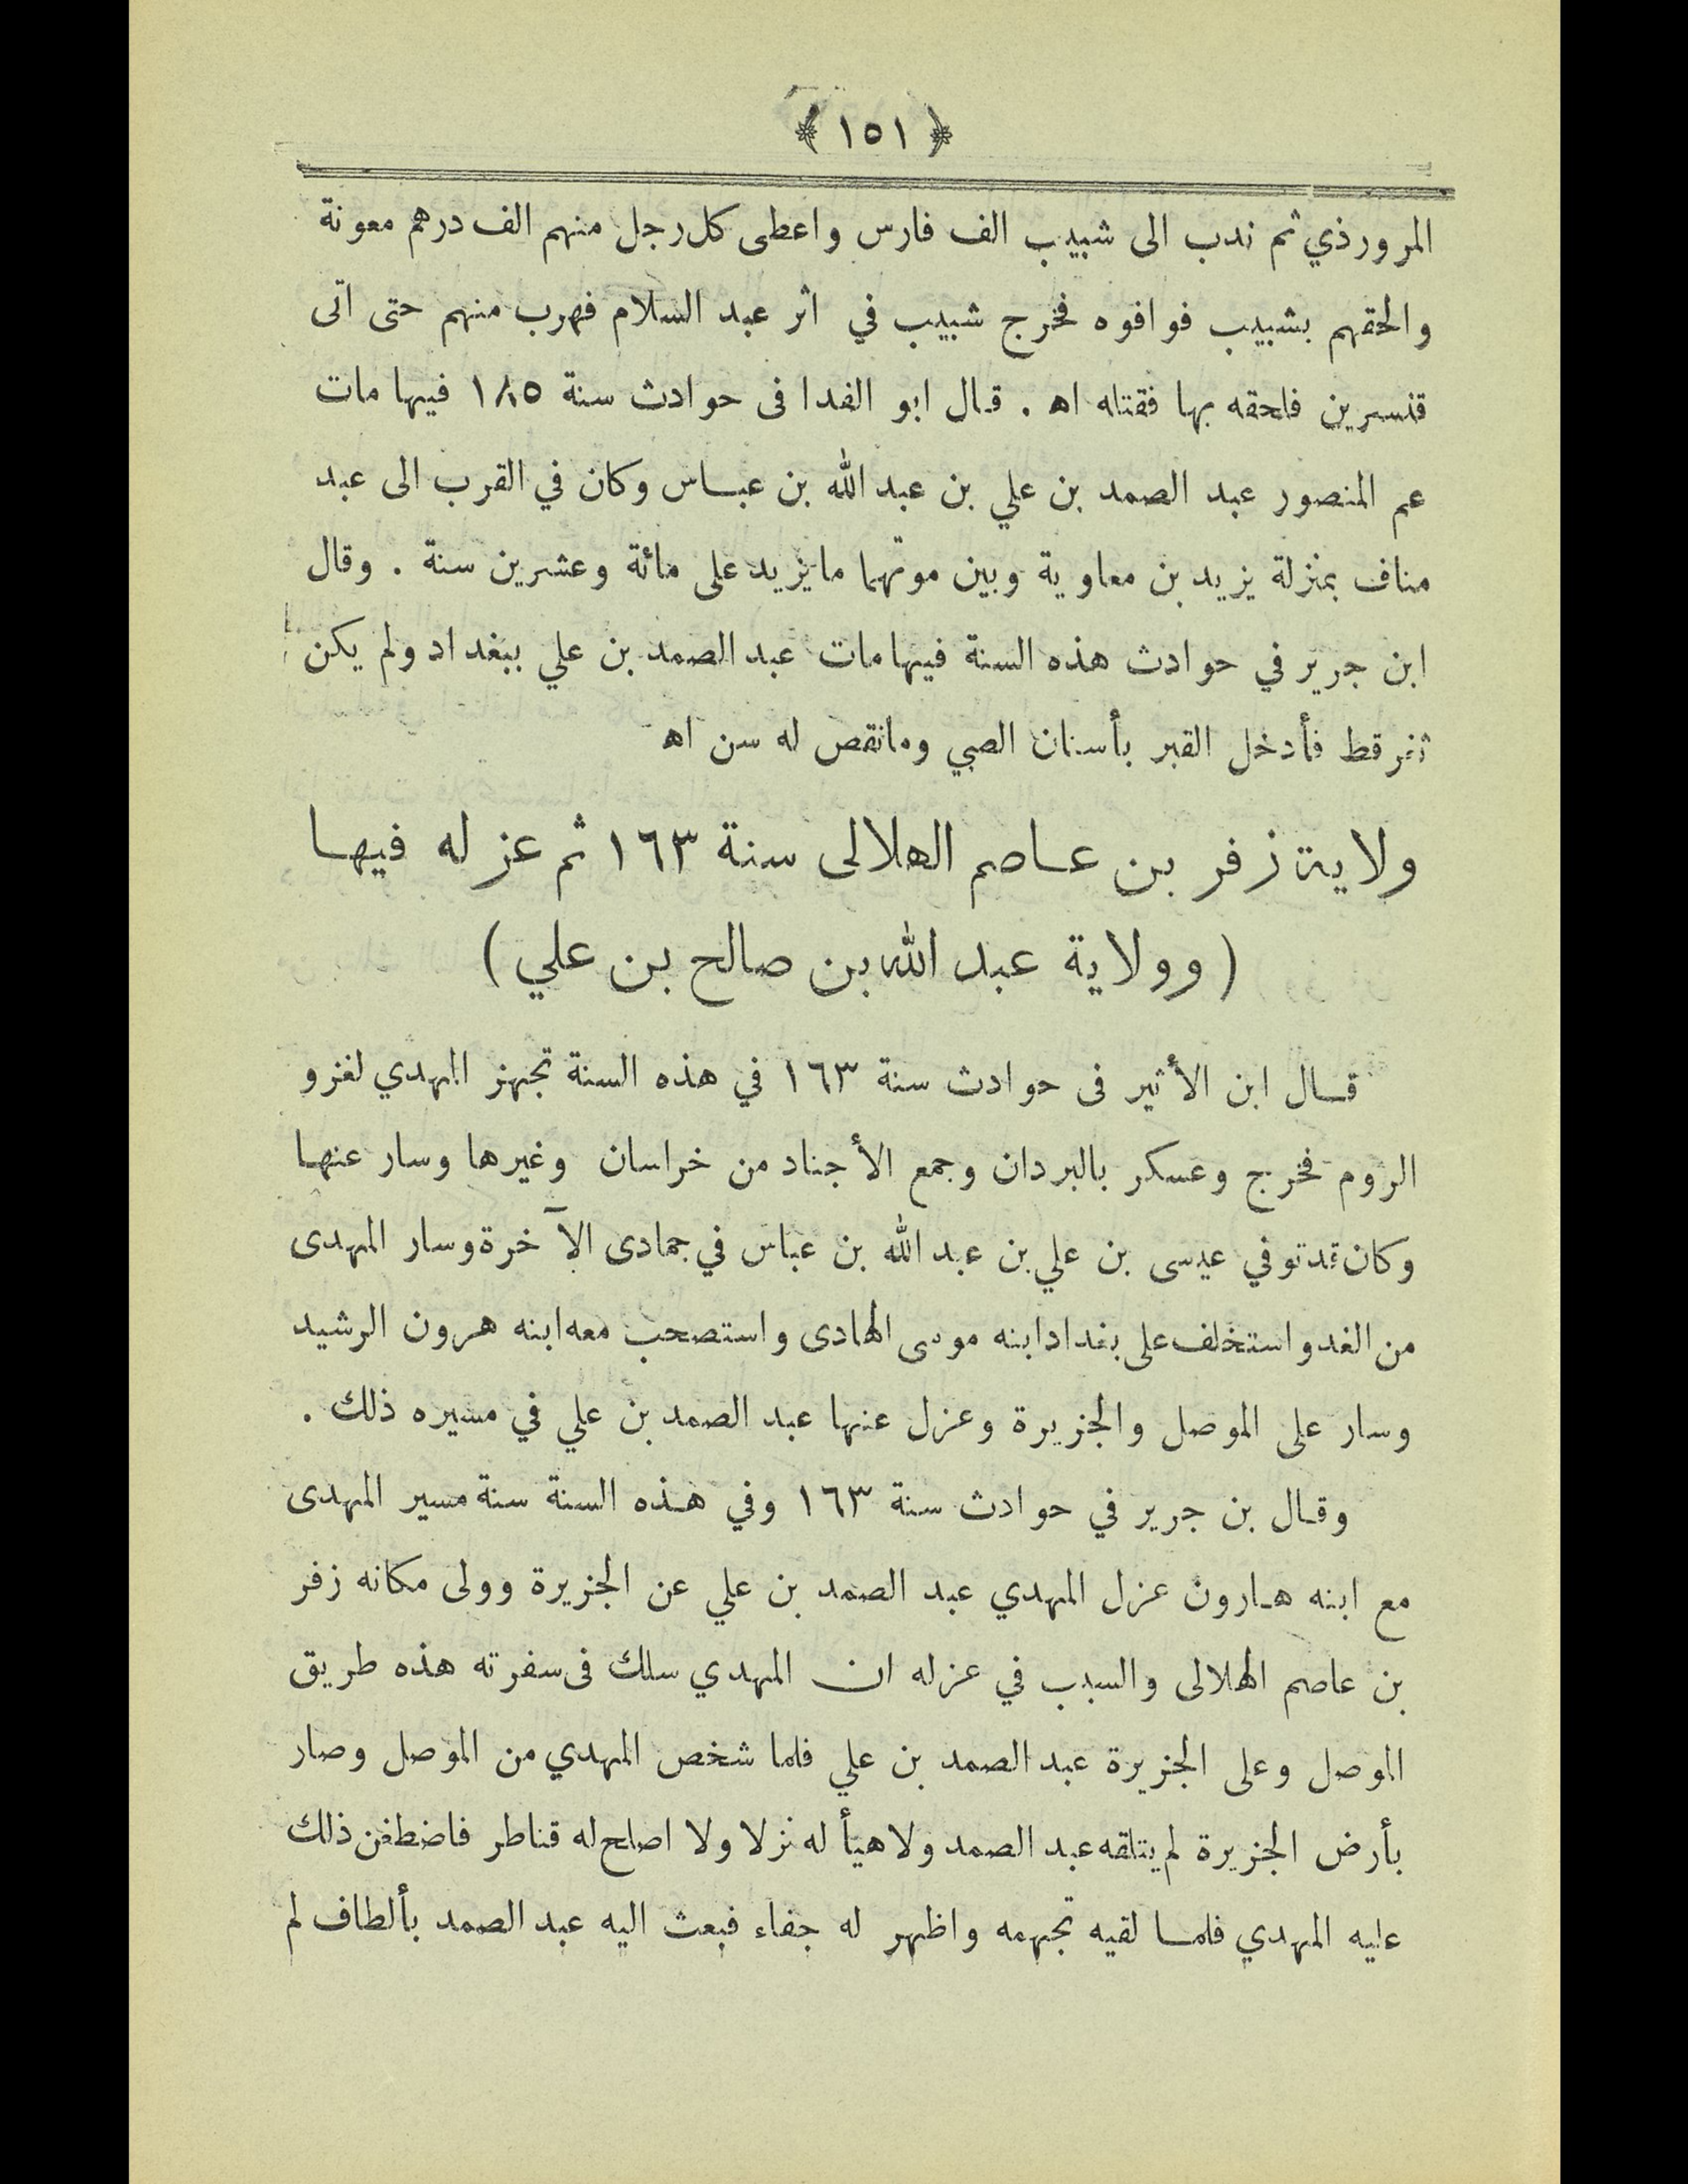 ﴿ ١٥١ ﴾
المرورذي ثم ندب الى شبيب الف فارس واعطى كل رجل منهم الف درهم معونة
والحقهم بشبيب فوافوه فخرج شبيب في اثر عبد السلام فهرب منهم حتى اتى
قنسرين فلحقه بها فقتله اهـ . قال ابو الفدا فى حوادث سنة ١٨٥ فيها مات
عم المنصور عبد الصمد بن علي بن عبد الله بن عباس وكان في القرب الى عبد
مناف بمنزلة يزيد بن معاوية وبين موتهما ما يزيد على مائة وعشرين سنة . وقال
ابن جرير في حوادث هذه السنة فيها مات عبد الصمد بن علي ببغداد ولم يكن
ثغر قط فأدخل القبر بأسنان الصبي وما نقص له سن اهـ
ولاية زفر بن عاصم الهلالى سنة ١٦٣ ثم عزله فيها
( وولاية عبد الله بن صالح بن علي )
قال ابن الأثير فى حوادث سنة ١٦٣ في هذه السنة تجهز المهدي لغزو
الروم فخرج وعسكر بالبردان وجمع الأجناد من خراسان وغيرها وسار عنها
وكان قد توفي عيسى بن علي بن عبد الله بن عباس في جمادى الآخرة وسار المهدى
من الغد واستخلف على بغداد ابنه موسى الهادى واستصحب معه ابنه هرون الرشيد
وسار على الموصل والجزيرة وعزل عنها عبد الصمد بن علي في مسيره ذلك .
وقال بن جرير في حوادث سنة ١٦٣ وفي هذه السنة سنة مسير المهدى
مع ابنه هارون عزل المهدي عبد الصمد بن علي عن الجزيرة وولى مكانه زفر
بن عاصم الهلالى والسبب في عزله ان المهدي سلك فى سفرته هذه طريق
الموصل وعلى الجزيرة عبد الصمد بن علي فلما شخص المهدي من الموصل وصار
بأرض الجزيرة لم يتلقه عبد الصمد ولا هيأ له نزلا ولا اصلح له قناطر فاضطغن ذلك
عليه المهدي فلما لقيه تجهمه واظهر له جفاء فبعث اليه عبد الصمد بألطاف لم